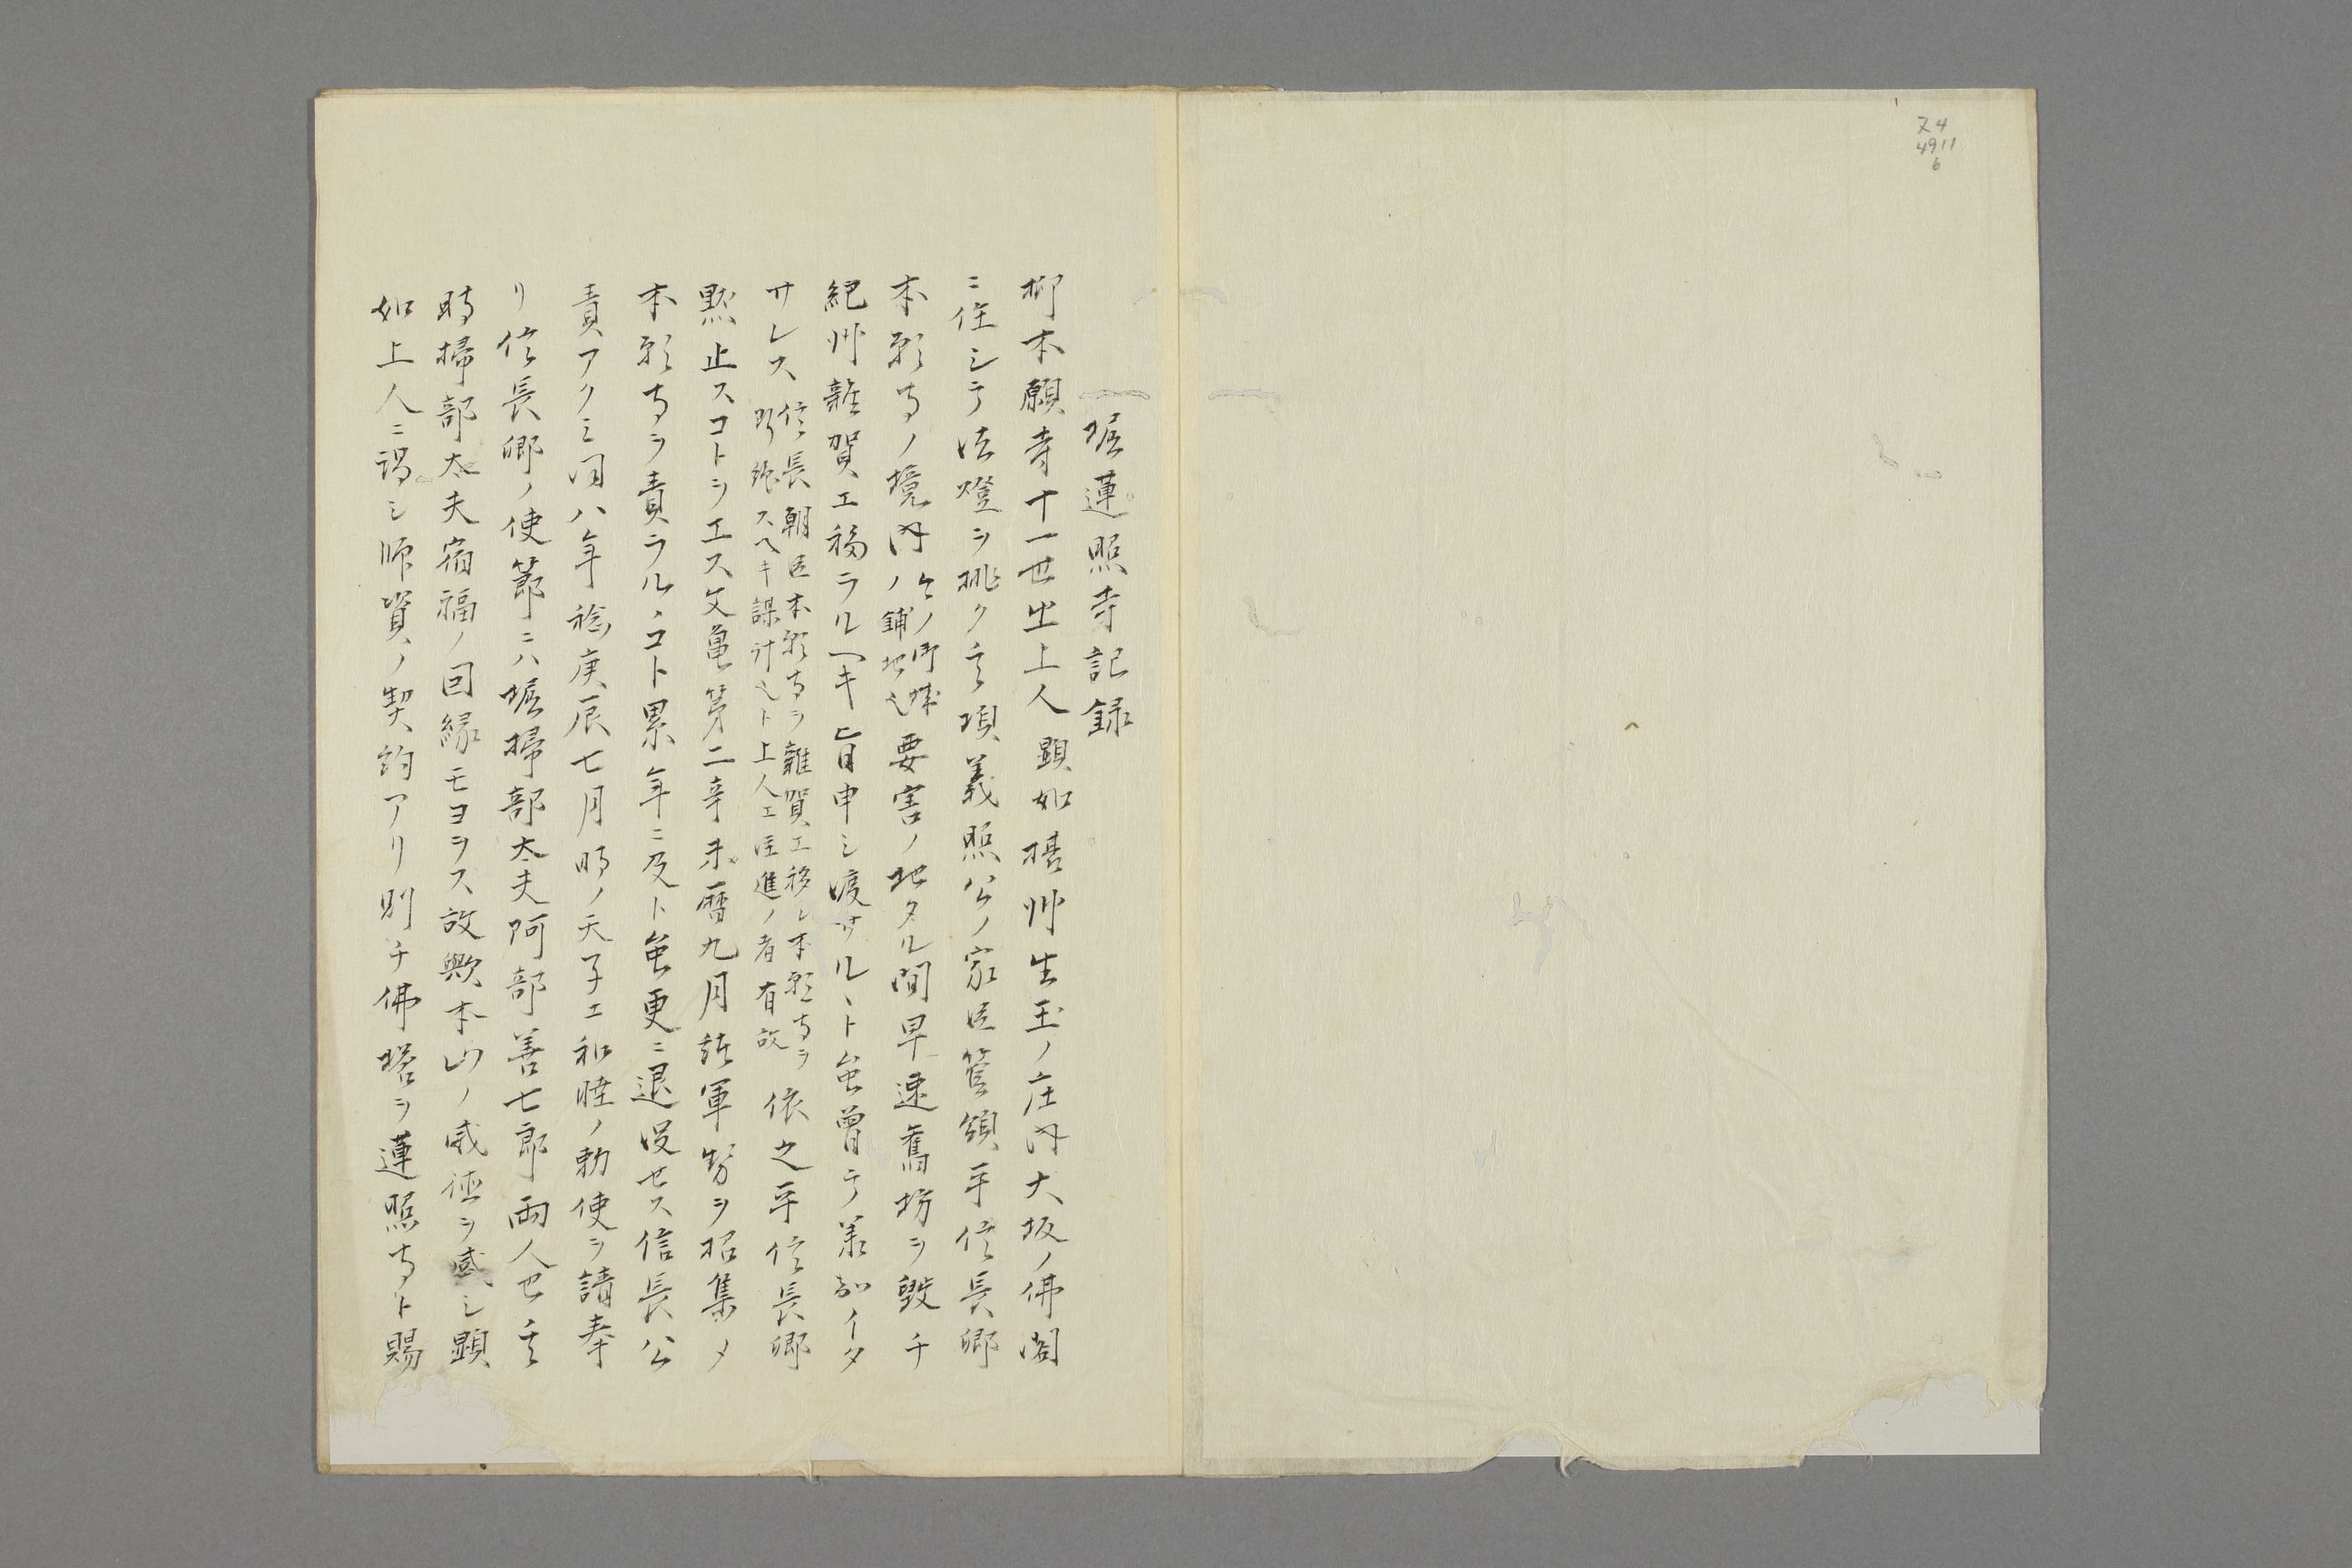 ヌ4
4911
6
堀蓮照寺記録
抑本願寺十一世ノ上人顕如摂州生玉ノ庄内大坂ノ佛閣
ニ住シテ法燈ヲ挑ク其頃義照公ノ家臣管領平信長卿
本願寺ノ境内ノ今ノ御城ノ鋪地也要害ノ地タル間早速舊坊ヲ毀チ
紀州雜賀エ移ラルヘキ旨申シ渡サルヽト虽曾テ羕知イタ
サレス信長朝臣本願寺ヲ雜賀エ移シ本願寺ヲ断絶スヘキ謀计也ト上人エ注進ノ者有故依之平信長卿
黙止スコトヲエス文亀第二辛未暦九月諸軍勢ヲ招集メ
本願寺ヲ責ラルヽコト累年ニ及ト虽更ニ退没セス信長公
責アクミ同八年稔庚辰七月時ノ天子エ和睦ノ勅使ヲ請奉
リ信長卿ノ使節ニハ堀掃部太夫阿部善七郎両人也其
時掃部太夫宿福ノ因縁モヨヲス故歟本山ノ威徳ヲ感シ顕
如上人ニ謁シ師資ノ契約アリ則チ佛塔ヲ蓮照寺ト賜